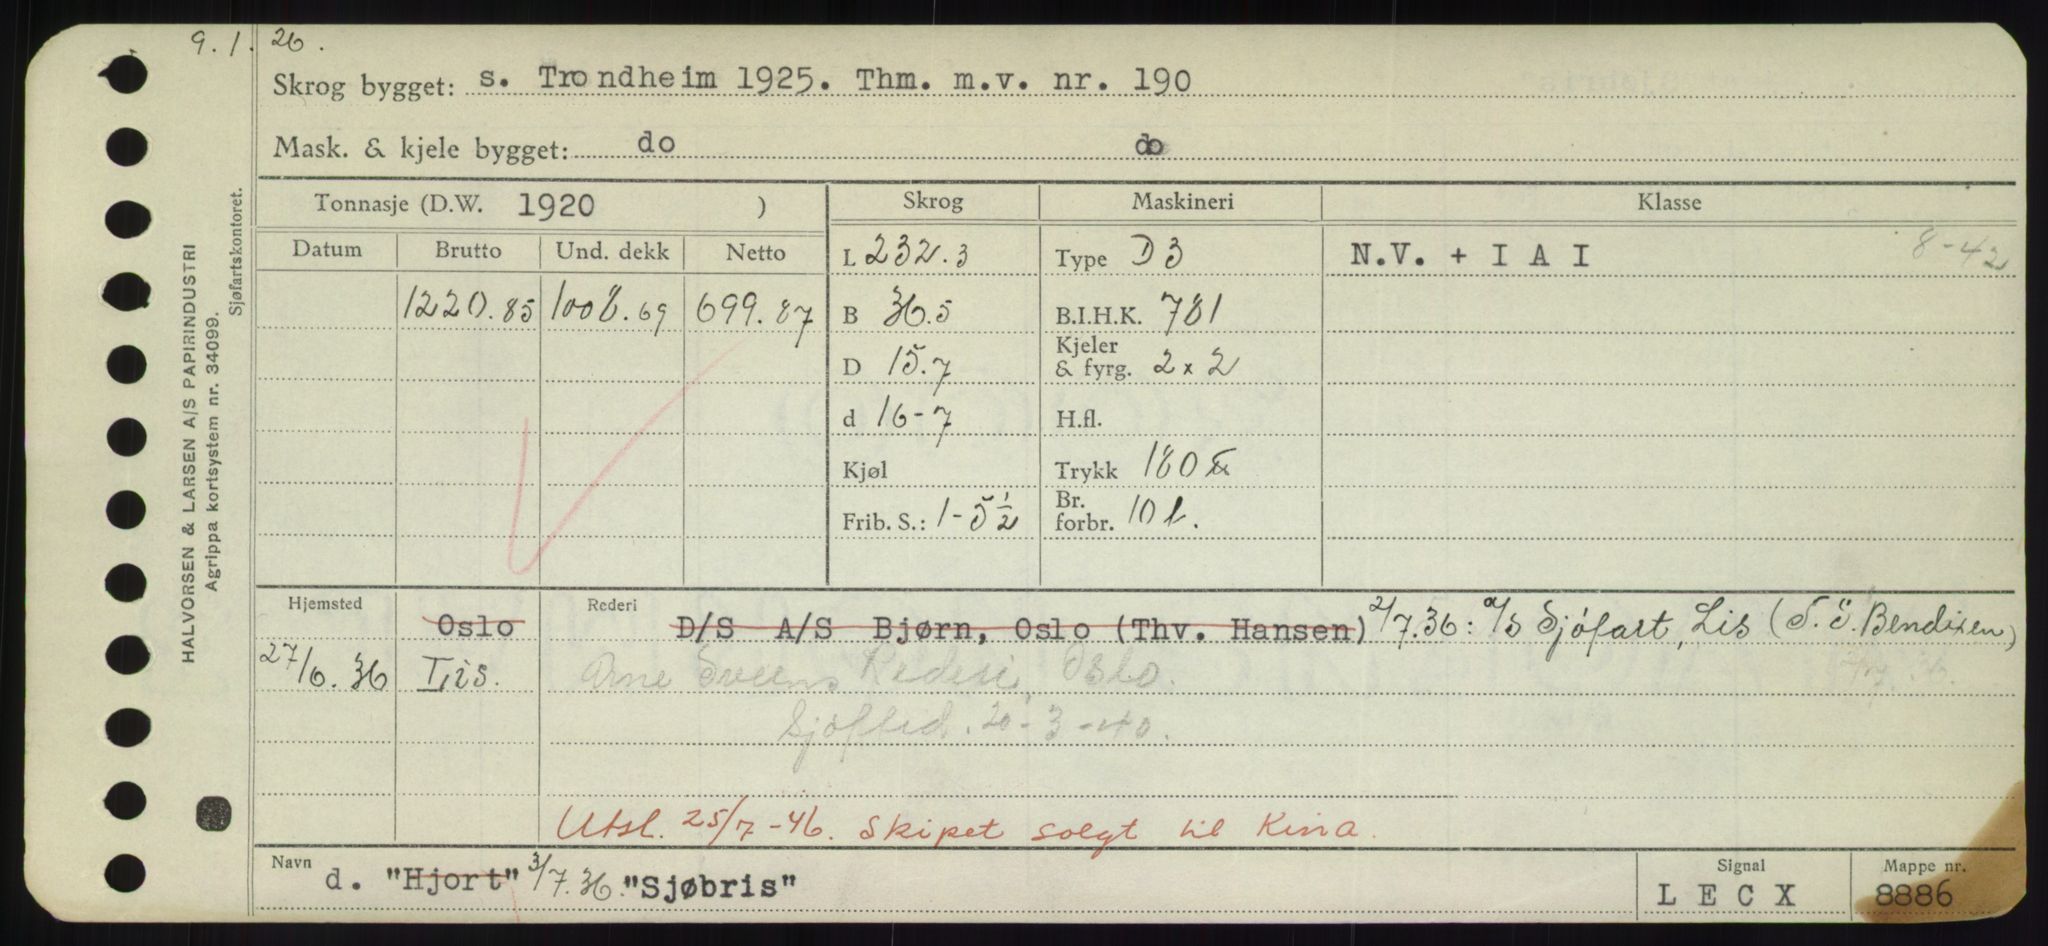 9.1.26.
Skrog bygget: s. Trondheim 1925. Thm. m.v. nr. 190
Mask. & kjele bygget: do do
Tonnasje (D.W. 1920 ) Skrog Maskineri Klasse
Datum Brutto Und. dekk Netto L 232.3 Type D3 N.V. + I A I 8-42
1220.85 1008.69 699.87 B 36.5 B.I.H.K. 781
D 15.7 Kjeler & fyrg. 2 x 2
d 16-7 H.fl.
Kjøl Trykk 180
Frib. S.: 1-5 1/2 Br. forbr. 10 t.
Hjemsted Oslo Rederi D/S A/S Bjørn, Oslo (Thv. Hansen) 2/7.36: A/S Sjøfart, Lis (T. S. Bendixen)
27/6.36 Lis. Arne Sveens Rederi, Oslo.
Sjøftid. 20-3-40.
Utsl. 25/7-46. Skipet solgt til Kina.
Navn d. "Hjort" 3/7.36. "Sjøbris" Signal LECX Mappe nr. 8886
HALVORSEN & LARSEN A/S PAPIRINDUSTRI
Agrippa kortsystem nr. 34099.
Sjøfartskontoret.